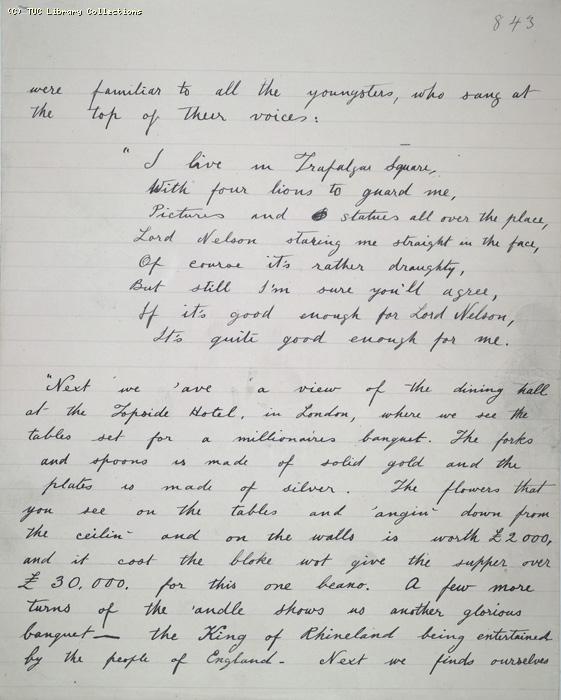 (C) TUC Library Collections
843
were familiar to all the youngsters, who sang at
the top of their voices:
"I live in Trafalgar Square,
With four lions to guard me,
Pictures and statues all over the place,
Lord Nelson staring me straight in the face,
Of course it's rather draughty,
But still I'm sure you'll agree,
If it's good enough for Lord Nelson,
It's quite good enough for me.
"Next we 'ave a view of the dining hall
at the Topside Hotel, in London, where we see the
tables set for a millionaires banquet. The forks
and spoons is made of solid gold and the
plates is made of silver. The flowers that
you see on the tables and 'angin' down from
the ceilin' and on the walls is worth £2000,
and it cost the bloke wot give the supper over
£30,000. for this one beano. A few more
turns of the 'andle shows us another glorious
banquet — the King of Rhineland being entertained
by the people of England - Next we finds ourselves